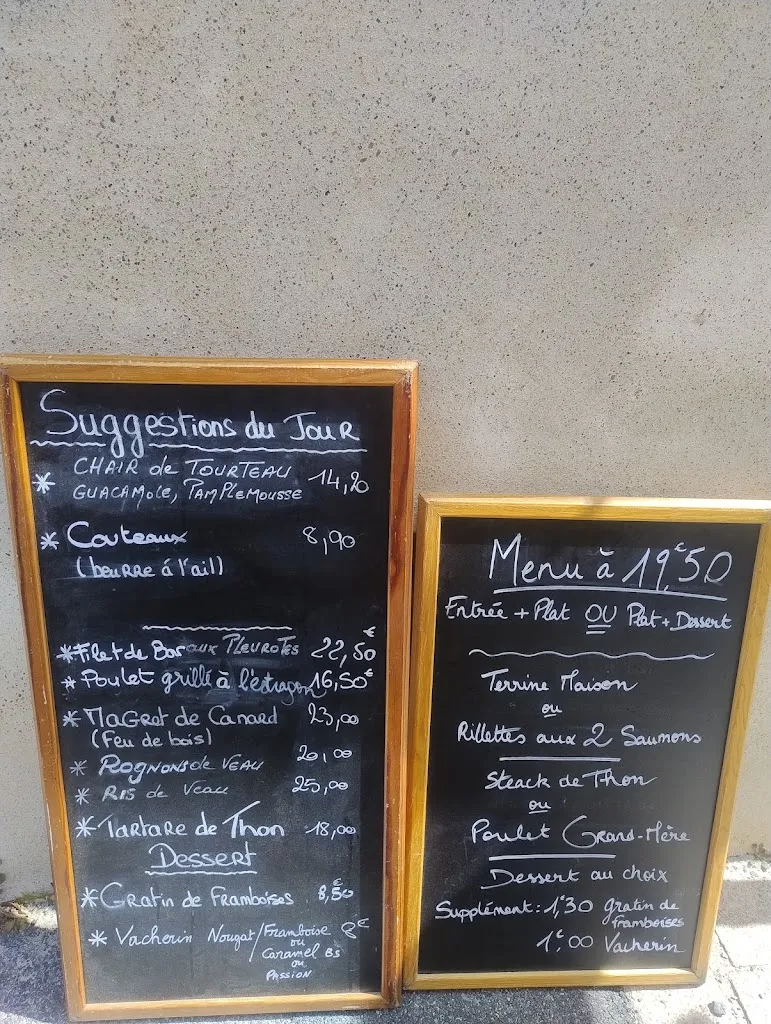 Suggestions du Jour
* CHAIR de TOURTEAU
GUACAMOLE, PAMPLEMOUSSE 14,20
* Couteaux 8,90
(beurre á l'ail)
* Filet de Bar aux PLEUROTES 22,50€
* Poulet grillé à l'estragon 16,50€
* MAGRET de CANARD 23,00
(Feu de bois)
* ROGNONS de VEAU 20,00
* RIS de Veau 25,00
* TARTARE de Thon 18,00
DESSERT
* GRATIN de FRAMBOISES 8,50€
* Vacherin Nougat/Framboise 8€
ou
Caramel BS
ou
PASSION
Menu à 19€50
Entrée + Plat OU Plat + Dessert
Terrine Maison
ou
Rillettes aux 2 Saumons
Steack de Thon
ou
Poulet Grand-Mère
Dessert au choix
Supplément : 1€30 gratin de
framboises
1€00 Vacherin